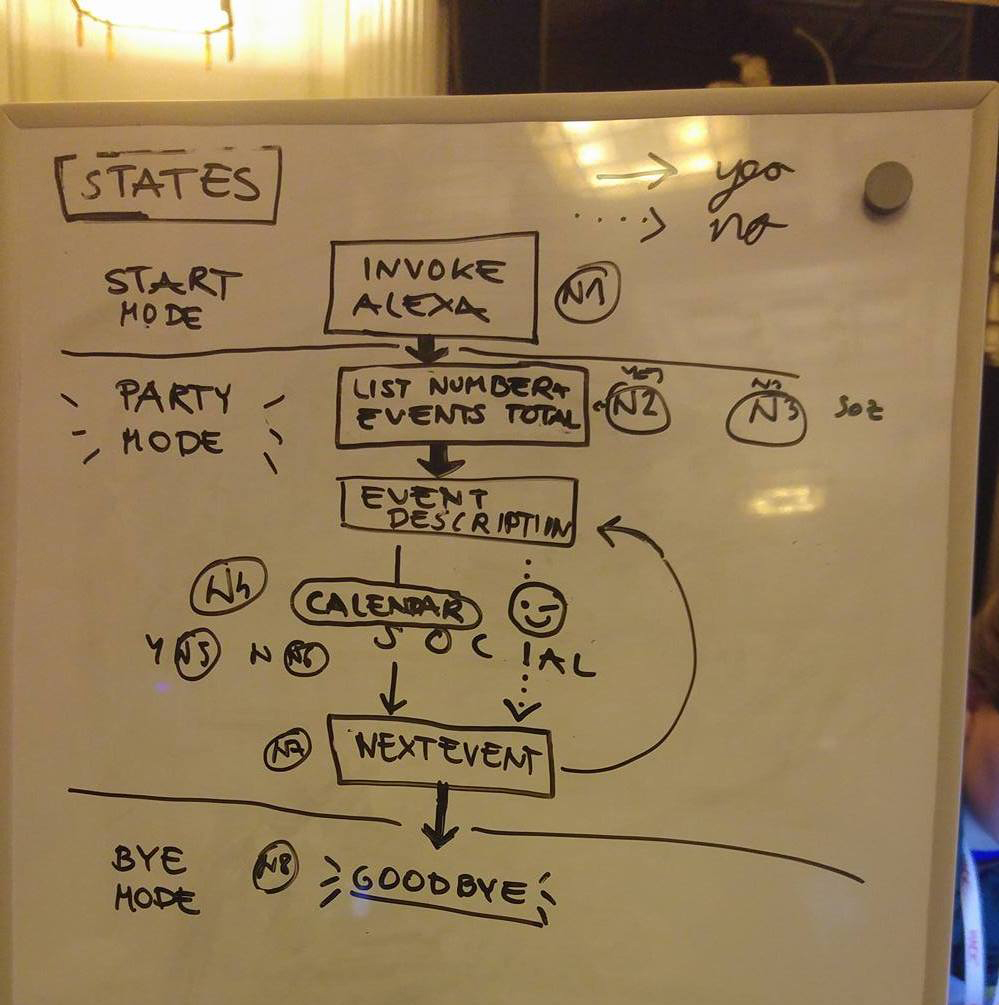 STATES
yes
no
START
MODE
INVOKE
ALEXA
N1
PARTY
MODE
LIST NUMBER+
EVENTS TOTAL
YES
N2
NO
N3
EVENT
DESCRIPTION
N4
CALENDAR
Y N5 N N6
SOC!AL
N7
NEXT EVENT
BYE
MODE
N8
GOODBYE